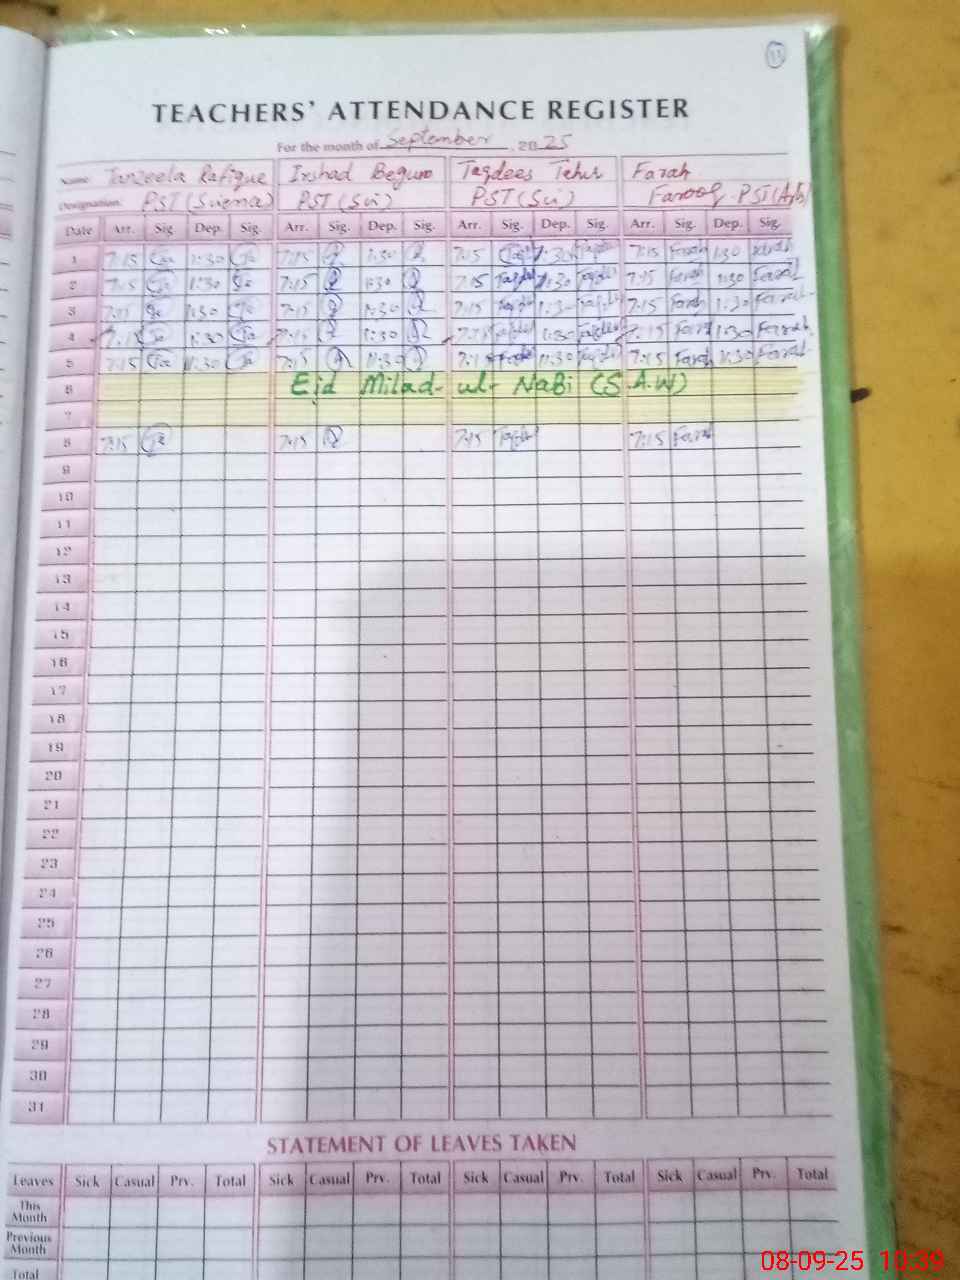 11
TEACHERS' ATTENDANCE REGISTER
For the month of September, 2025
Name: Tanzeela Rafique Irshad Begum Taqdees Tahir Farah
Designation: PST (Science) PST (Sci) PST (Sci) Farooq PST (Arb)
Date Arr. Sig. Dep. Sig. Arr. Sig. Dep. Sig. Arr. Sig. Dep. Sig. Arr. Sig. Dep. Sig.
1 7:15 1:30 7:15 1:30 7:15 1:30 7:15 Farah 1:30 Farah
2 7:15 1:30 7:15 1:30 7:15 1:30 7:15 Farah 1:30 Farah
3 7:15 1:30 7:15 1:30 7:15 1:3 7:15 Farah 1:30 Farah
4 7:15 1:30 7:15 1:30 7:15 1:30 7:15 Farah 1:30 Farah
5 7:15 11:30 7:15 11:30 7:15 11:30 7:15 Farah 11:30 Farah
6 Eid Milad-ul-NaBi (S.A.W)
7
8 7:15 7:15 7:15 7:15 Farah
9
10
11
12
13
14
15
16
17
18
19
20
21
22
23
24
25
26
27
28
29
30
31
STATEMENT OF LEAVES TAKEN
Leaves Sick Casual Prv. Total Sick Casual Prv. Total Sick Casual Prv. Total Sick Casual Prv. Total
This
Month
Previous
Month
Total
08-09-25 10:39